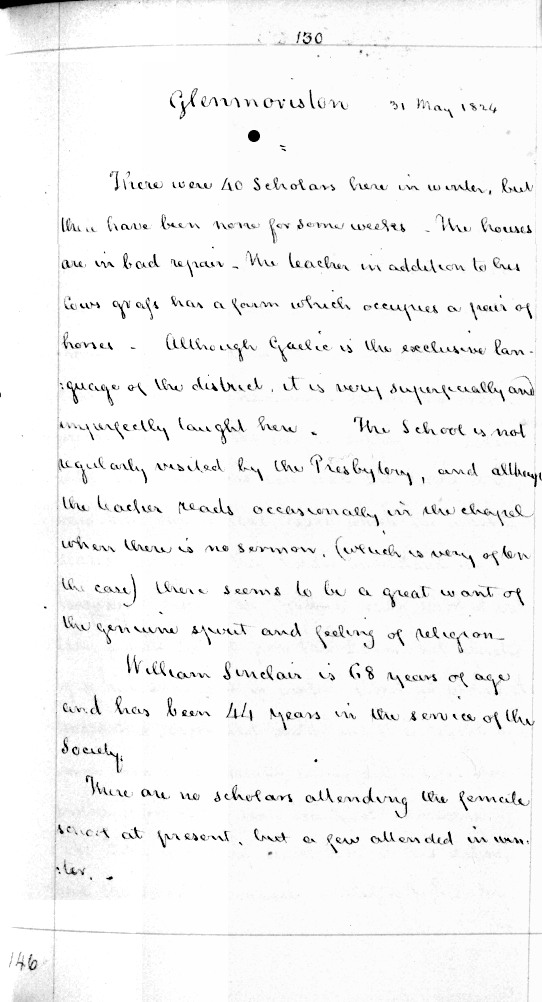 130
Glenmoriston 31 May 1824
There were 40 Scholars here in winter, but
there have been none for some weeks - The houses
are in bad repair - The teacher in addition to his
Cows grass has a farm which occupies a pair of
horses - Although Gaelic is the exclusive lan-
:guage of the district, it is very superficially and
imperfectly taught here. The School is not
regularly visited by the Presbytery, and although
the teacher reads occasionally in the chapel
when there is no sermon, (which is very often
the case) there seems to be a great want of
the genuine spirit and feeling of religion -
William Sinclair is 68 years of age
and has been 44 years in the service of the
Society.
There are no scholars attending the female
school at present, but a few attended in win-
:ter. -
146